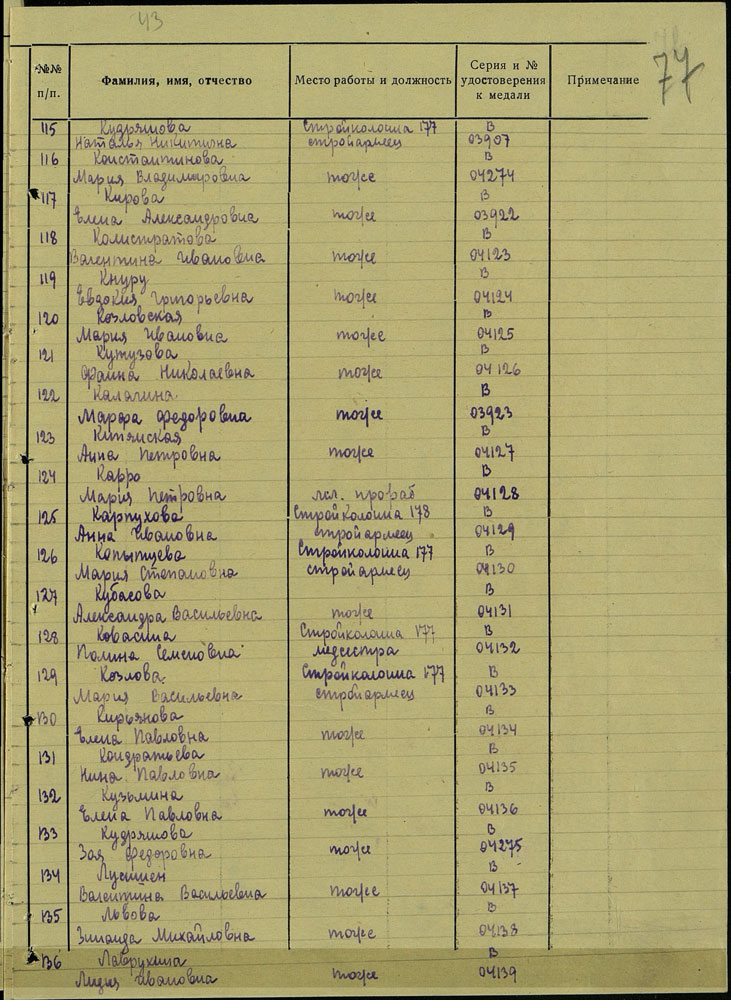 43
77
№№ п/п. Фамилия, имя, отчество Место работы и должность Серия и № удостоверения к медали Примечание
115 Кудряшова Стройколонна 177 В
Наталья Никитична стройармеец 03907
116 Константинова В
Мария Владимировна тоже 04274
117 Кирова В
Елена Александровна тоже 03922
118 Калистратова В
Валентина Ивановна тоже 04123
119 Кнуру В
Евдокия Григорьевна тоже 04124
120 Козловская В
Мария Ивановна тоже 04125
121 Кутузова В
Фаина Николаевна тоже 04126
122 Калагина В
Марфа Федоровна тоже 03923
123 В
Анна Петровна тоже 04127
124 Карро В
Мария Петровна мл. прораб 04128
125 Карпухова Стройколонна 178 В
Анна Ивановна стройармеец 04129
126 Копытцева Стройколонна 177 В
Мария Степановна стройармеец 04130
127 Кубасова В
Александра Васильевна тоже 04131
128 Ковасина Стройколонна 177 В
Полина Семеновна медсестра 04132
129 Козлова Стройколонна 177 В
Мария Васильевна стройармеец 04133
130 Кирьянова В
Елена Павловна тоже 04134
131 Кондратьева В
Нина Павловна тоже 04135
132 Кузьмина В
Елена Павловна тоже 04136
133 Кудряшова В
Зоя Федоровна тоже 04275
134 В
Валентина Васильевна тоже 04137
135 Львова В
Зинаида Михайловна тоже 04138
136 Лаврухина В
Лидия Ивановна тоже 04139